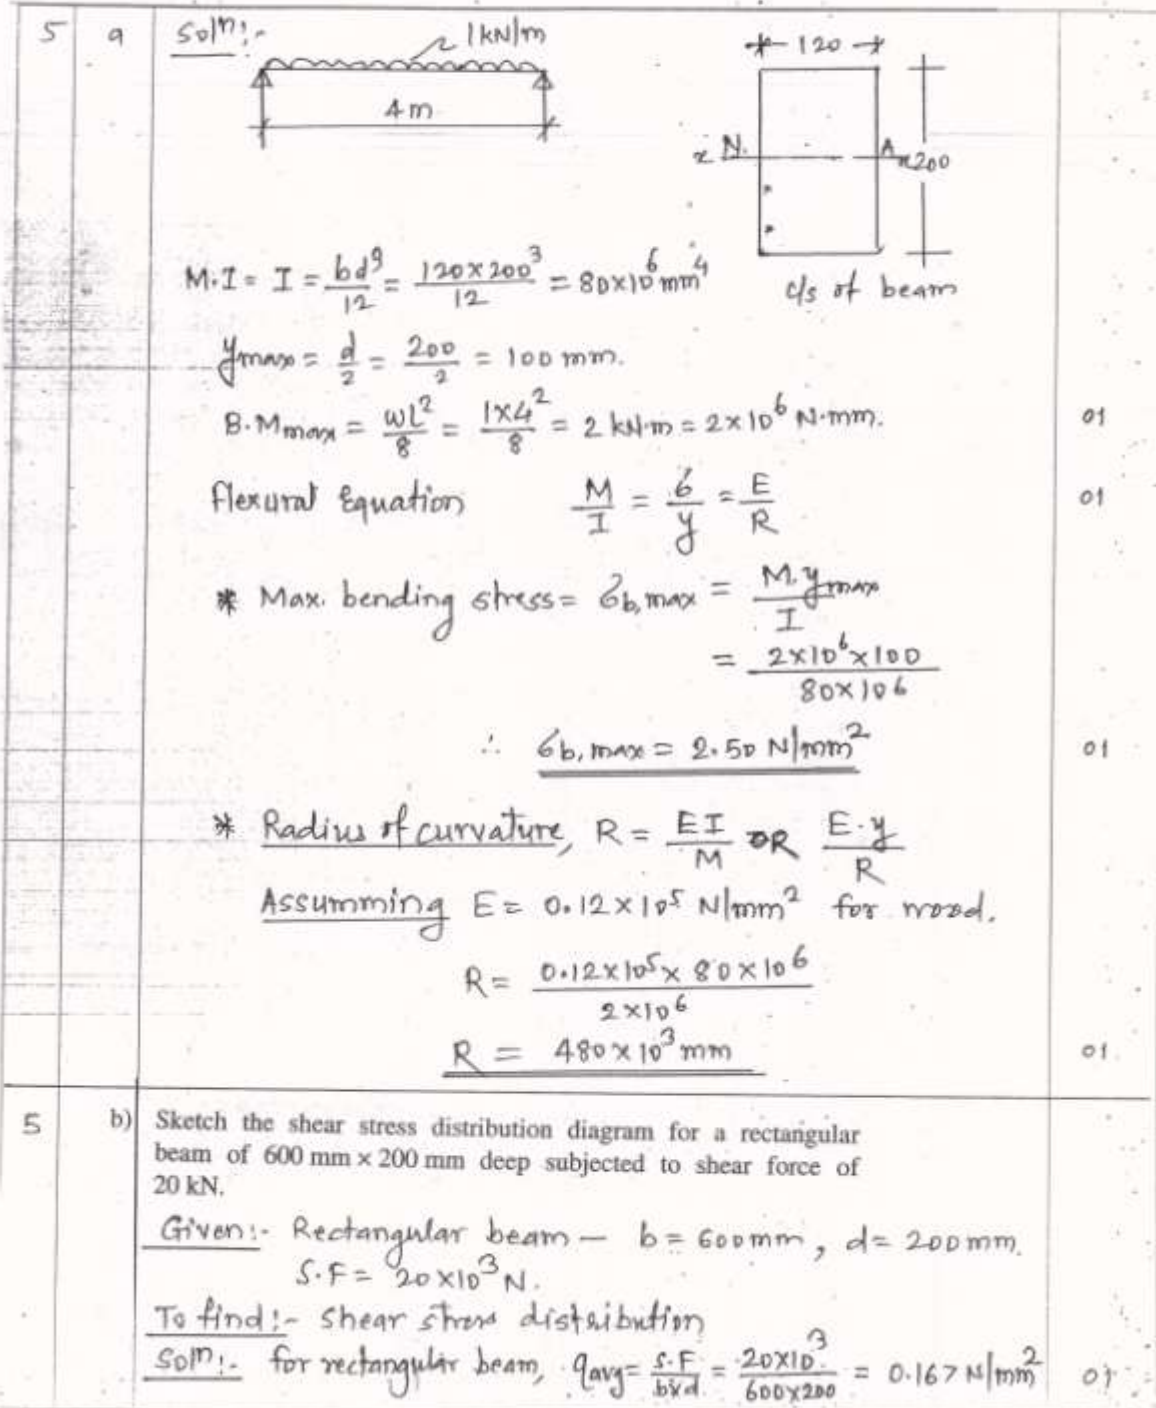 5 a Soln:- 1 kN/m
4m
120
x N. A x 200
c/s of beam
M.I = I = bd³/12 = 120×200³/12 = 80×10⁶ mm⁴
ymax = d/2 = 200/2 = 100 mm.
B.Mmax = wl²/8 = 1×4²/8 = 2 kN·m = 2×10⁶ N·mm. 01
Flexural Equation M/I = σ/y = E/R 01
* Max. bending stress = σb,max = M.ymax/I
= 2×10⁶×100/80×106
∴ σb,max = 2.50 N/mm² 01
* Radius of curvature, R = EI/M OR E·y/R
Assumming E = 0.12×10⁵ N/mm² for wood.
R = 0.12×10⁵×80×10⁶/2×10⁶
R = 480×10³ mm 01
5 b) Sketch the shear stress distribution diagram for a rectangular
beam of 600 mm × 200 mm deep subjected to shear force of
20 kN.
Given:- Rectangular beam — b = 600mm, d = 200mm.
S.F = 20×10³ N.
To find:- shear stress distribution
Soln:- for rectangular beam, qavg = S.F/b×d = 20×10³/600×200 = 0.167 N/mm² 01